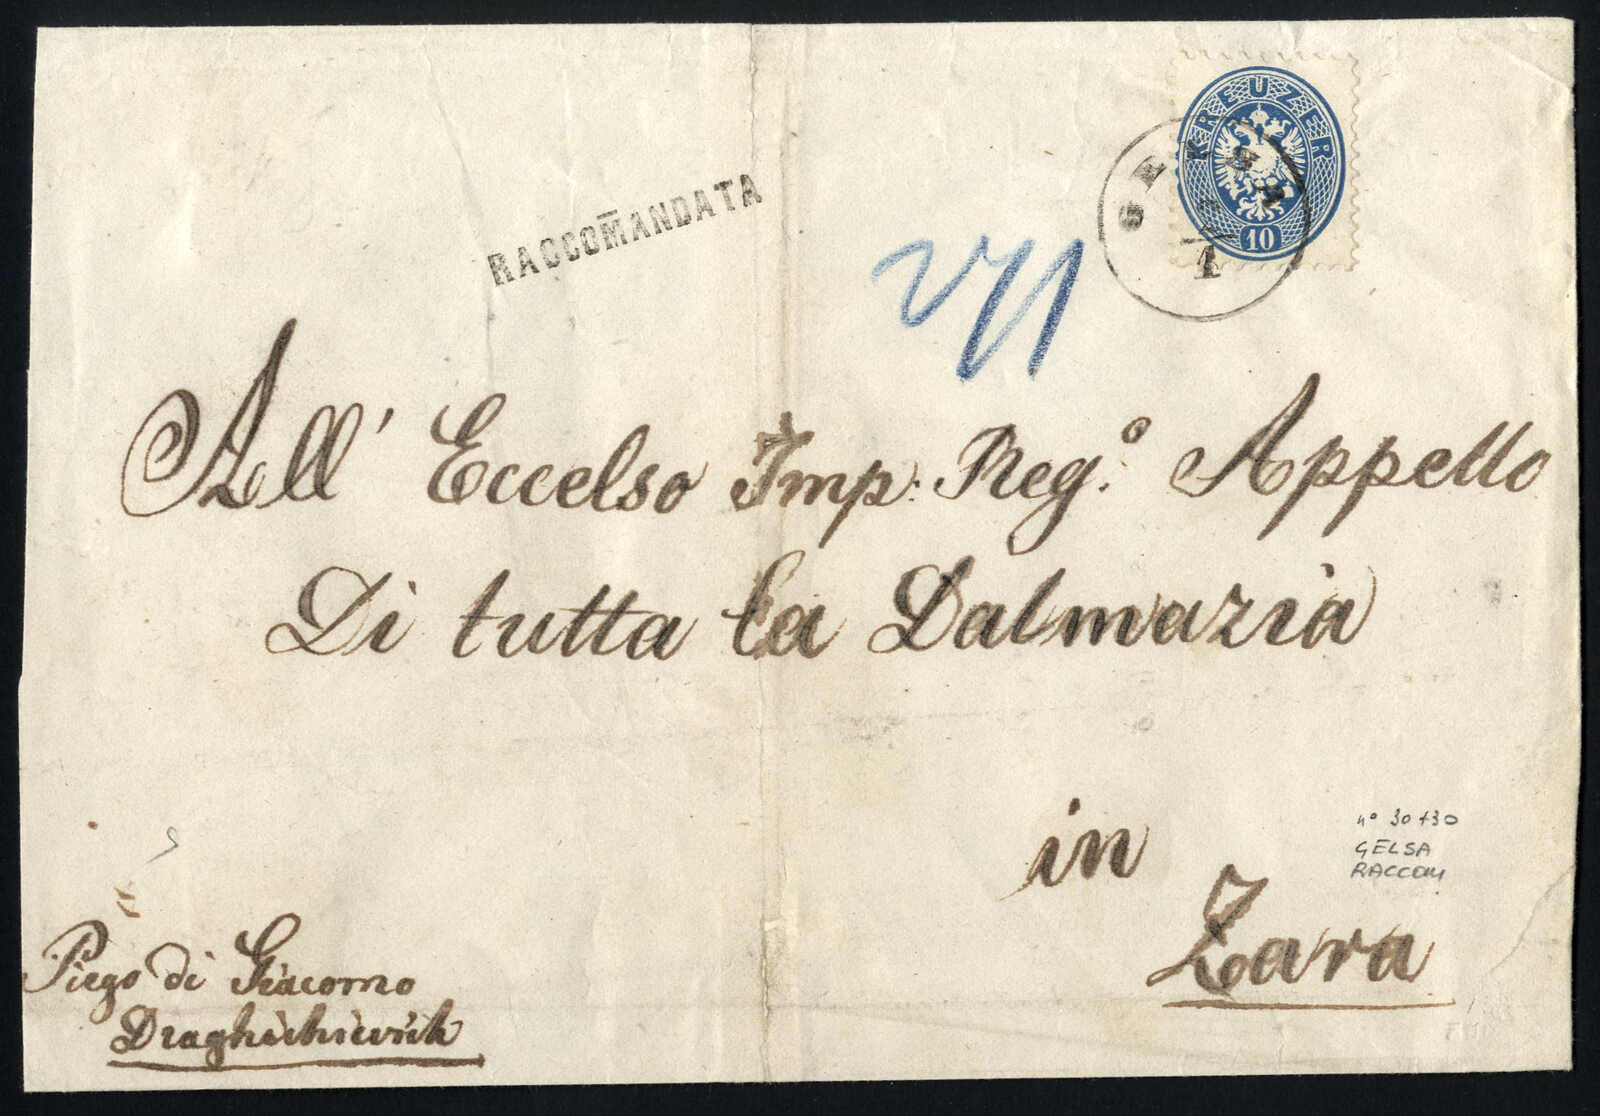 KREUZER
10
GELSA
1
RACCOM̄ANDATA
271
All' Eccelso Imp: Reg:º Appello
Di tutta la Dalmazia
in
Zara
nº 30+30
GELSA
RACCOM
Piego di Giacomo
Draghichievich